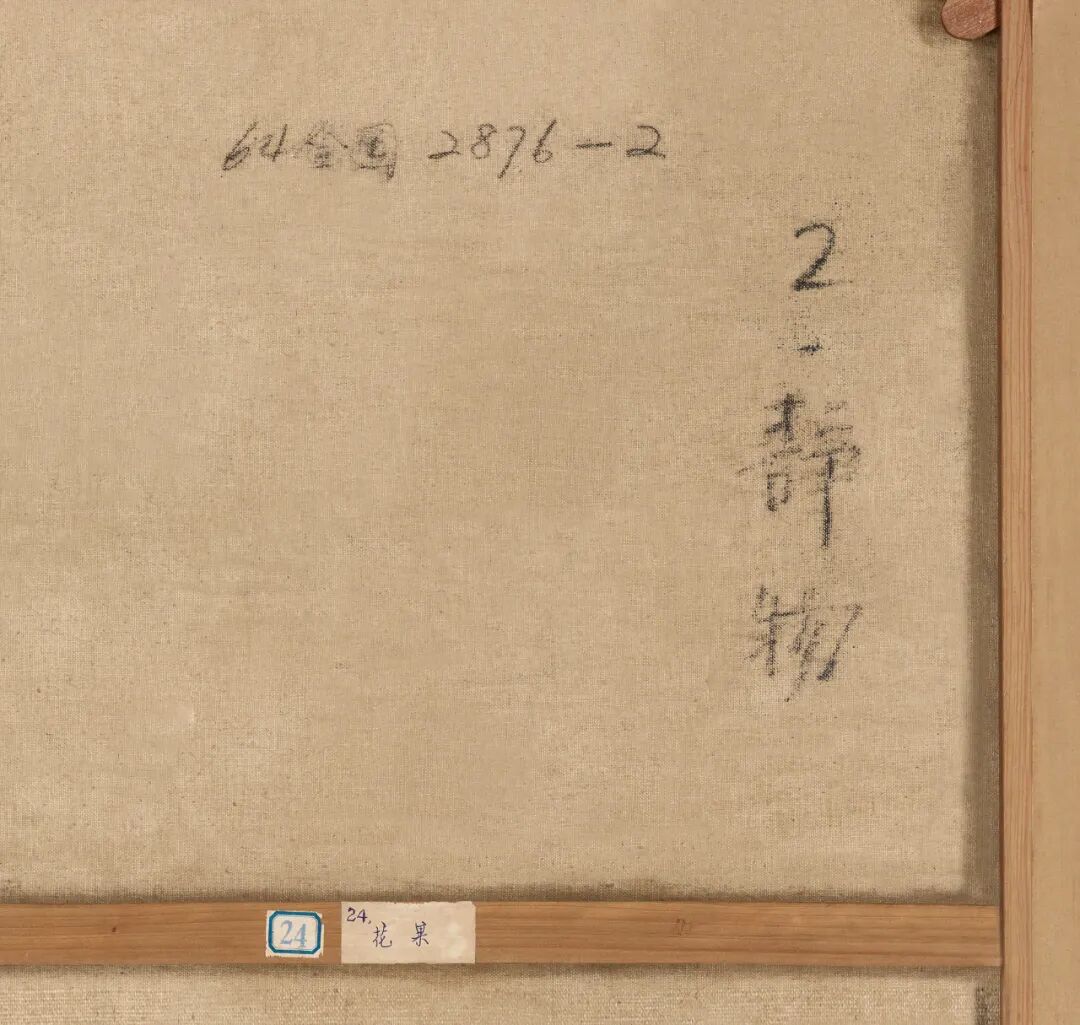 64全国 2876-2
2.静物
24
24.
花果